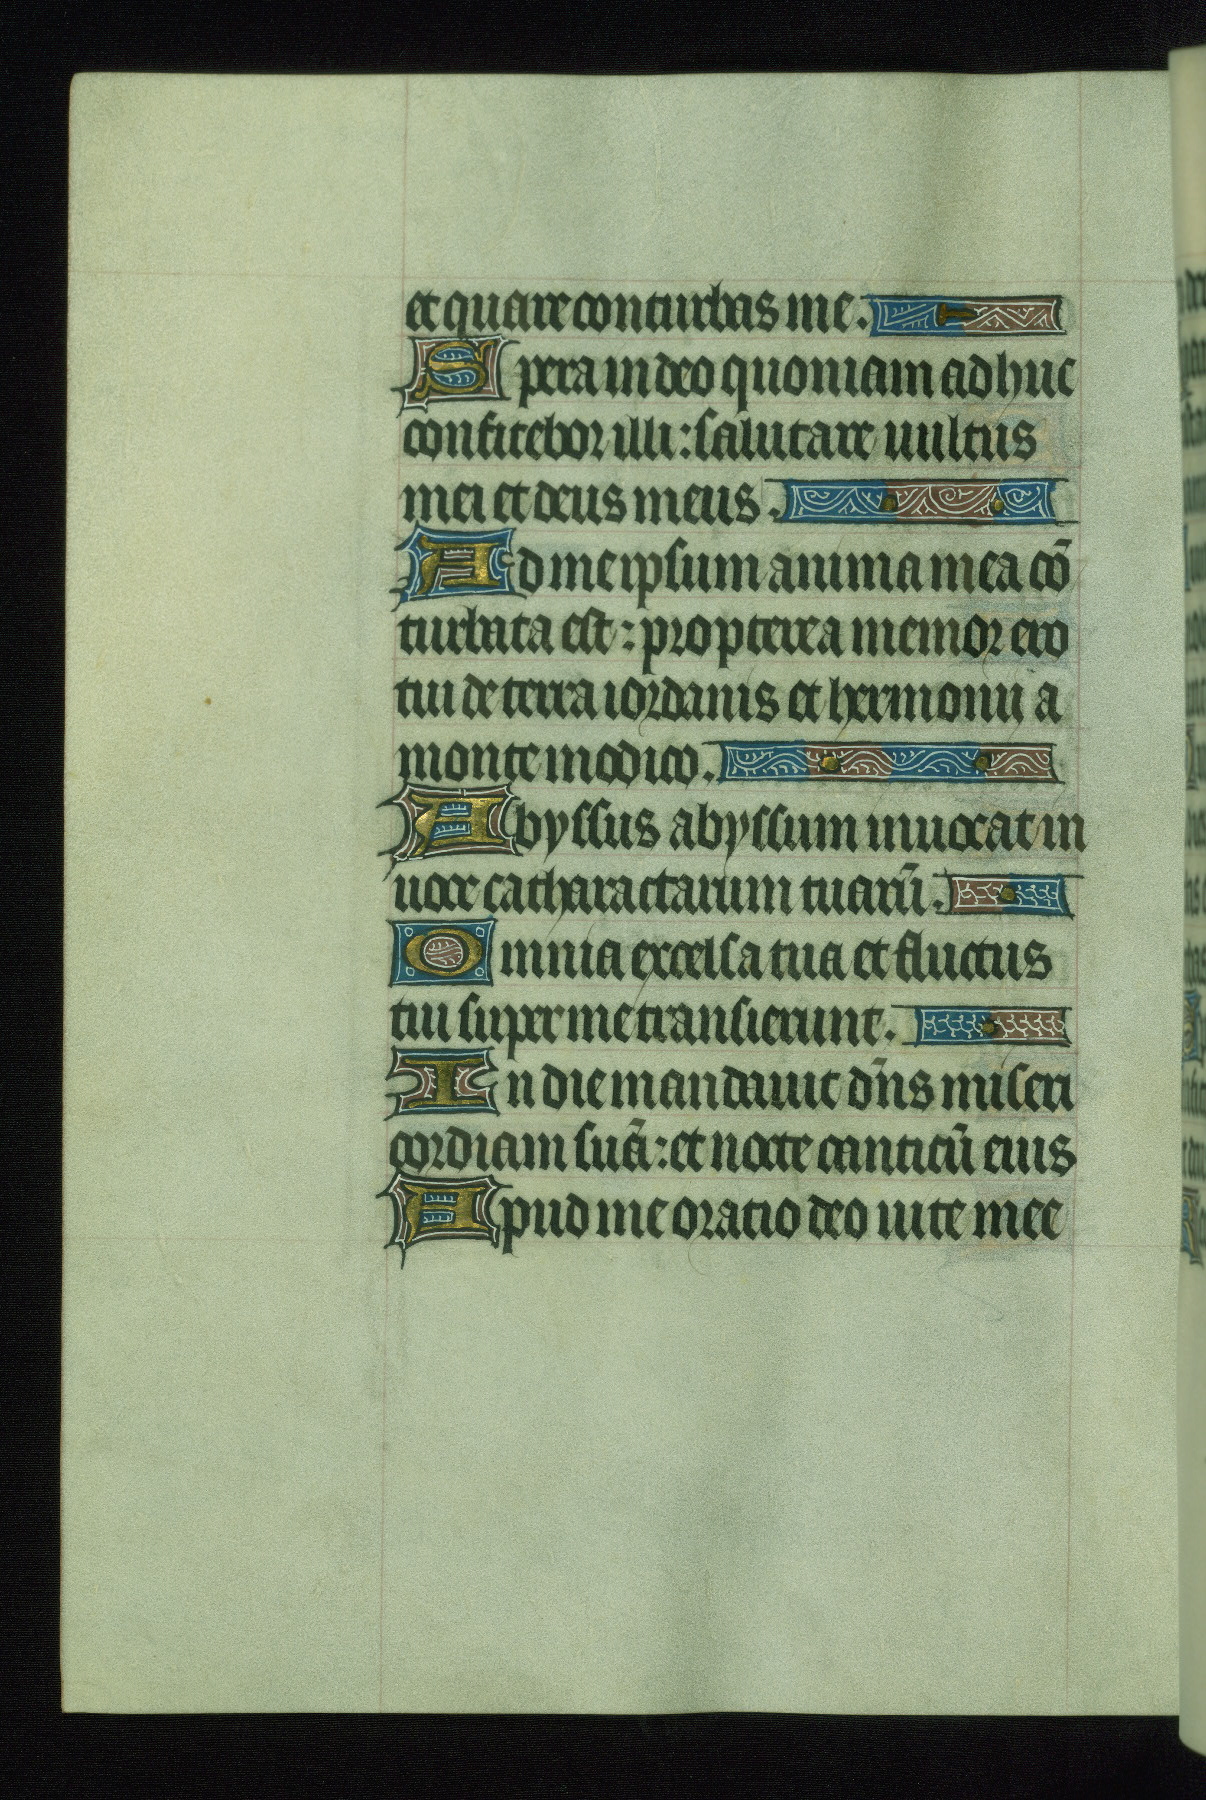 et quare conturbas me.
Spera in deo quoniam adhuc
confitebor illi: salutare uultus
mei et deus meus.
Ad me ipsum anima mea cō
turbata est: propterea memor ero
tui de terra iordanis et hermonii a
monte modico.
Abyssus abyssum inuocat in
uoce catharactarum tuarū.
Omnia excelsa tua et fluctus
tui super me transierunt.
In die mandauit dn̄s miseri
cordiam suā: et nocte canticū eius
Apud me oratio deo uite mee